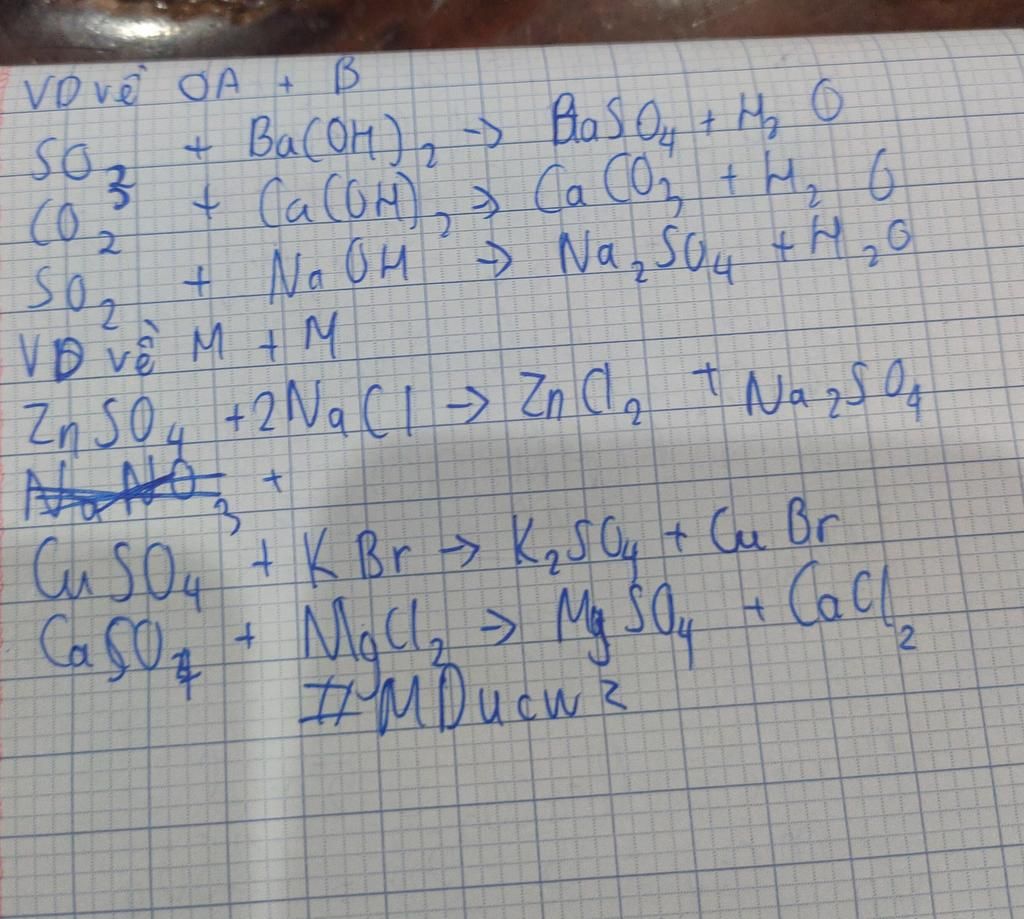 VD về OA + B
SO3 + Ba(OH)2 → BaSO4 + H2O
CO2 + Ca(OH)2 → CaCO3 + H2O
SO2 + NaOH → Na2SO4 + H2O
VD về M + M
ZnSO4 + 2NaCl → ZnCl2 + Na2SO4
NaNO3 +
CuSO4 + KBr → K2SO4 + CuBr
CaSO4 + MgCl2 → MgSO4 + CaCl2
#MDucw2